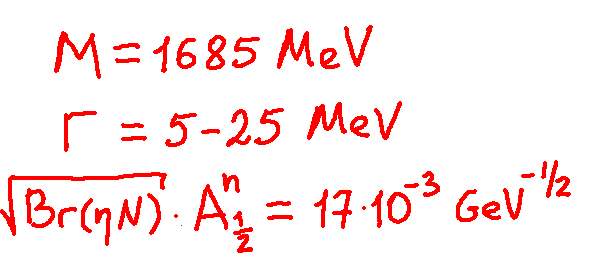 M = 1685 MeV
Γ = 5-25 MeV
√Br(ηN) · Aⁿ_{1/2} = 17·10⁻³ GeV^{-1/2}